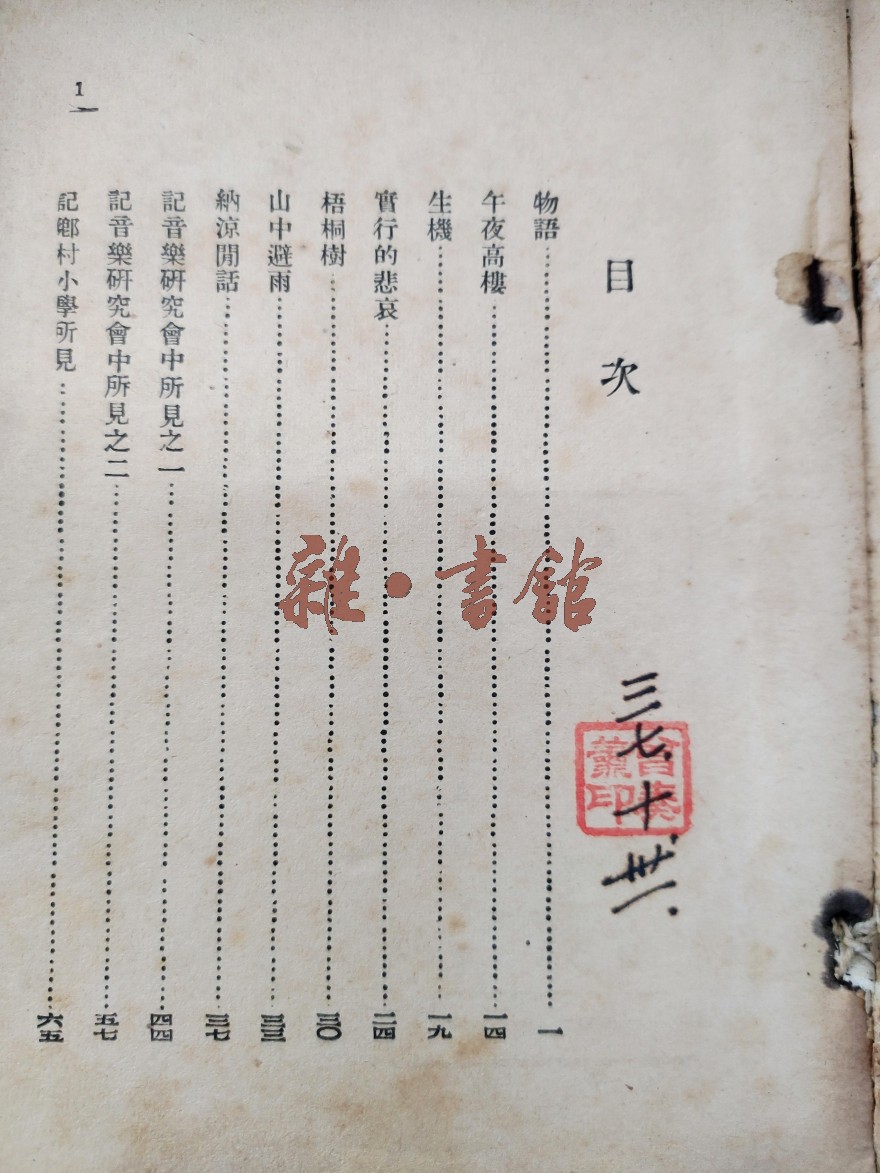 1
目次
物語……一
午夜高樓……一四
生機……一九
實行的悲哀……二四
梧桐樹……三〇
山中避雨……三三
納涼閒話……三七
記音樂研究會中所見之一……四四
記音樂研究會中所見之二……五七
記鄉村小學所見……六五
三七.十.卅一.
雜·書館